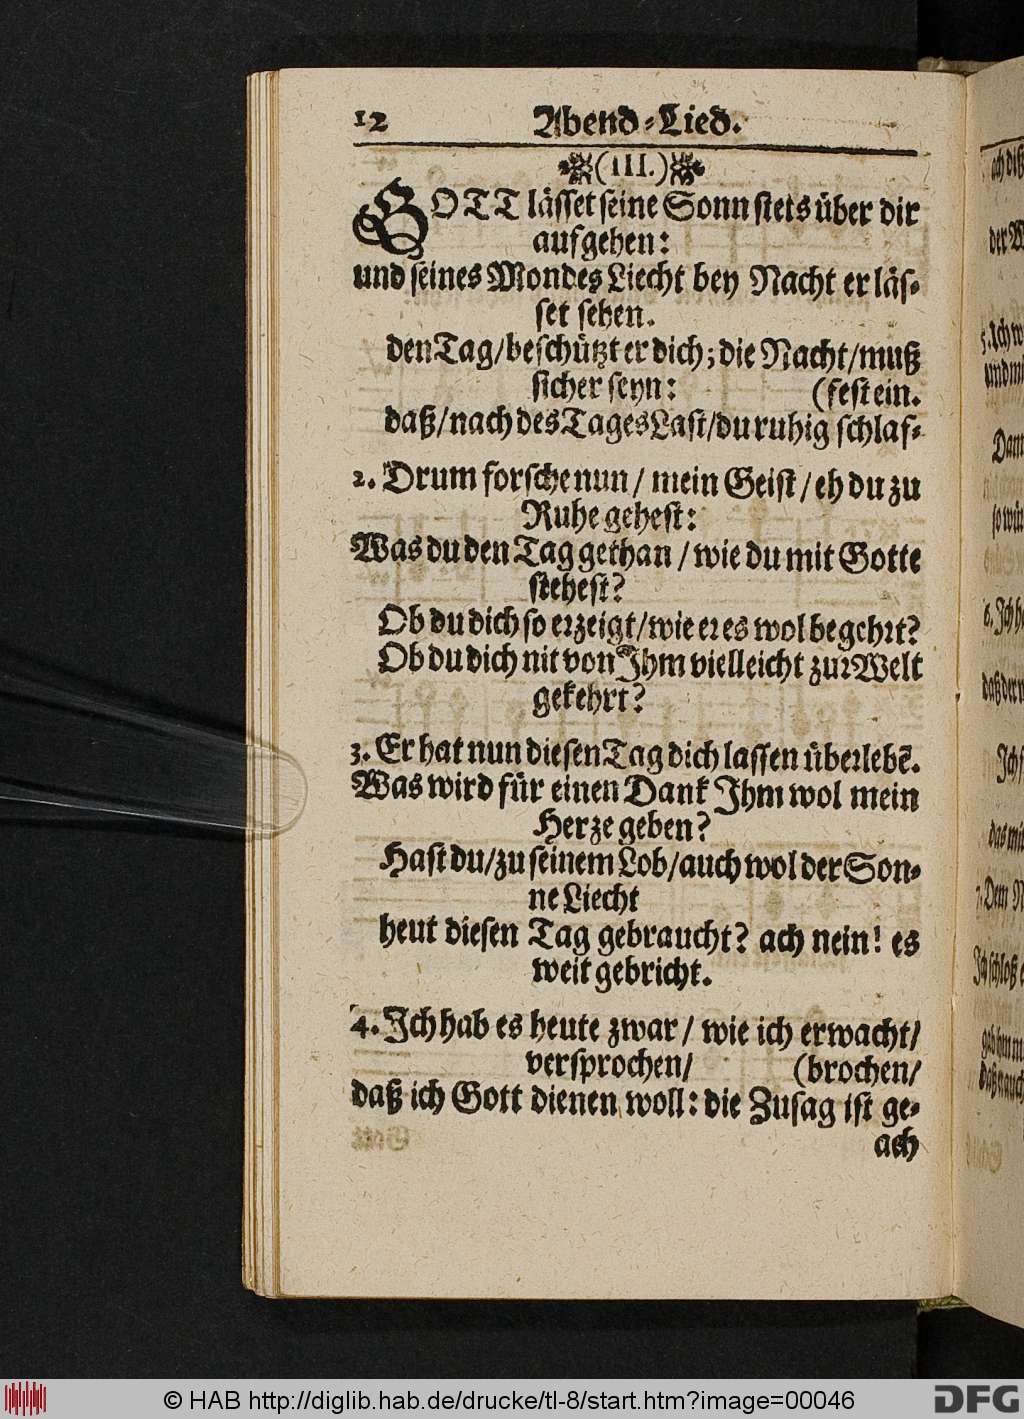 12 Abend-Lied.
(III.)
GOTT lässet seine Sonn stets über dir
aufgehen:
und seines Mondes Liecht bey Nacht er läs-
set sehen.
den Tag/beschützt er dich; die Nacht/muß
sicher seyn: (fest ein.
daß/nach des Tages Last/du ruhig schlaf-
2. Drum forsche nun / mein Geist / eh du zu
Ruhe gehest:
Was du den Tag gethan / wie du mit Gotte
stehest?
Ob du dich so erzeigt/wie er es wol begehrt?
Ob du dich nit von Ihm vielleicht zur Welt
gekehrt?
3. Er hat nun diesen Tag dich lassen überlebē.
Was wird für einen Dank Ihm wol mein
Herze geben?
Hast du/zu seinem Lob/auch wol der Son-
ne Liecht
heut diesen Tag gebraucht? ach nein! es
weit gebricht.
4. Ich hab es heute zwar / wie ich erwacht/
versprochen/ (brochen/
daß ich Gott dienen woll: die Zusag ist ge-
ach
ach diß
der W
5. Ich w
und mi
Dan
so wü
6. Ich h
daß der
Ich s
das mi
7. Dem N
Ich schloß
daß auch
© HAB http://diglib.hab.de/drucke/tl-8/start.htm?image=00046
DFG